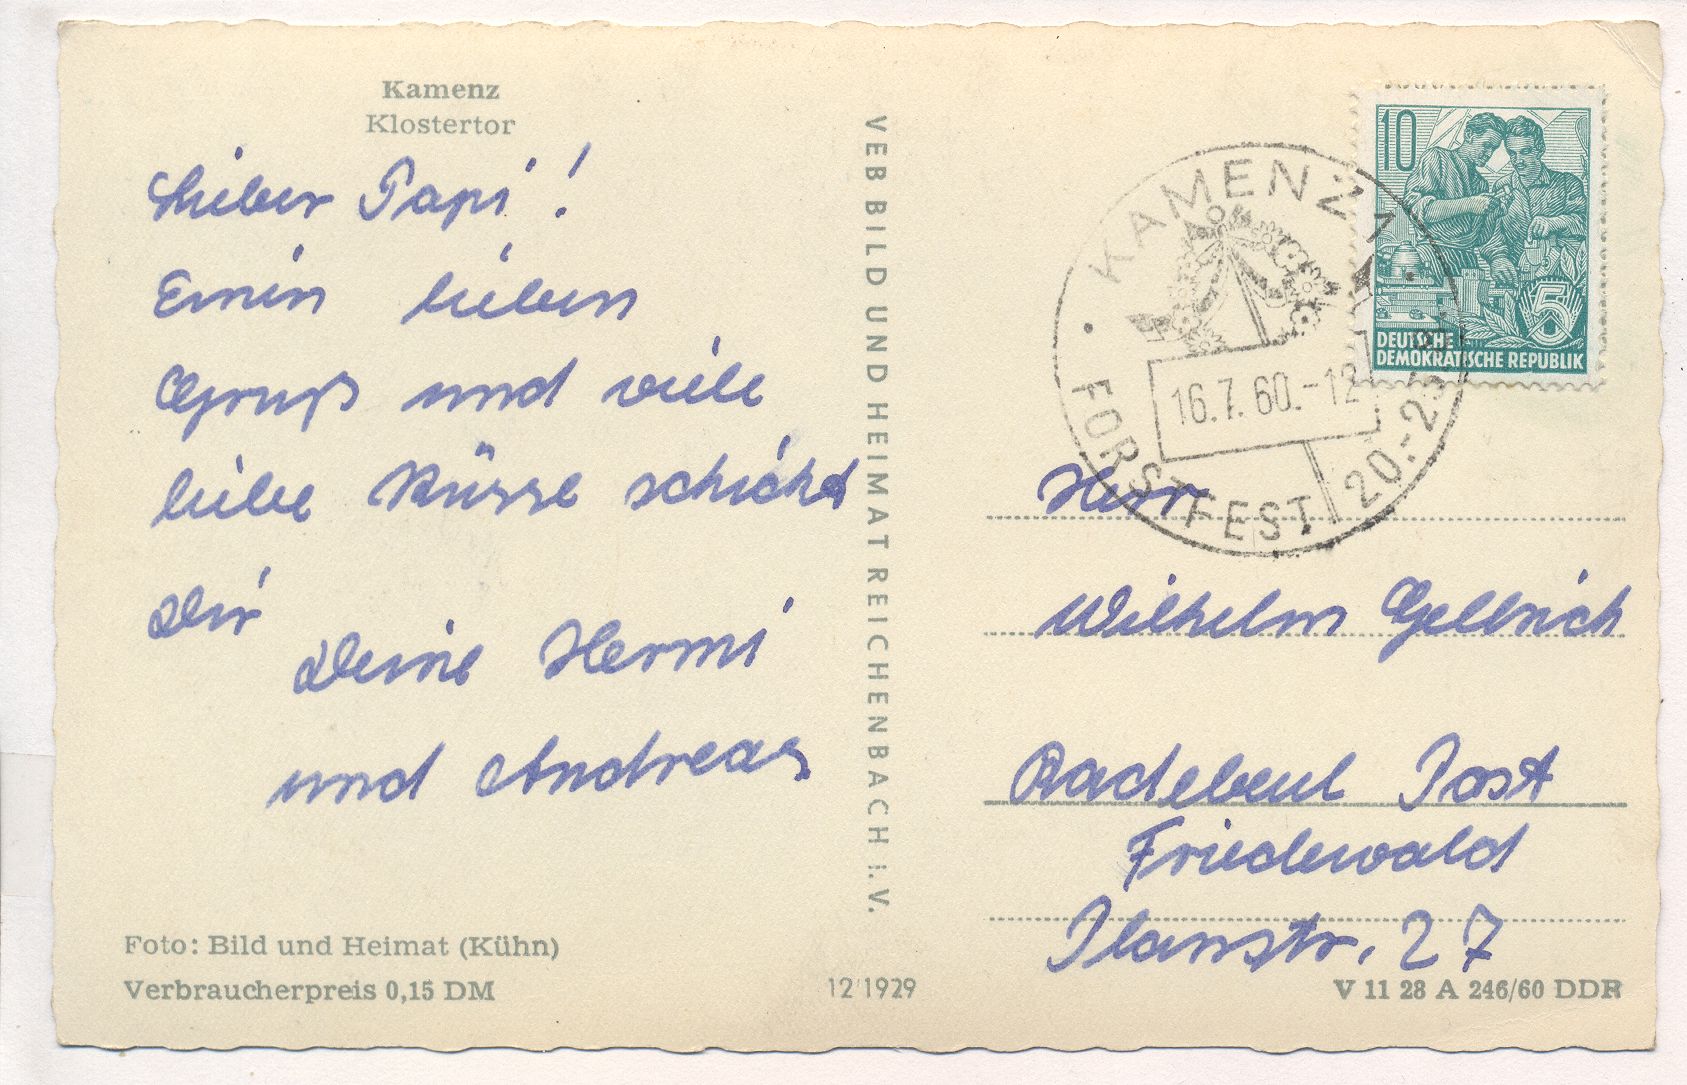 Kamenz
Klostertor
Lieber Papi!
Einen lieben
Gruß und viele
liebe Küsse schickt
Dir
Deine Hermi
und Andreas
Foto: Bild und Heimat (Kühn)
Verbraucherpreis 0,15 DM
VEB BILD UND HEIMAT REICHENBACH I.V.
12/1929
10
DEUTSCHE
DEMOKRATISCHE REPUBLIK
5
KAMENZ 1
16.7.60.-12
FORSTFEST 20.-
Herr
Wilhelm Gellrich
Radebeul Post
Friedewald
27
V 11 28 A 246/60 DDR